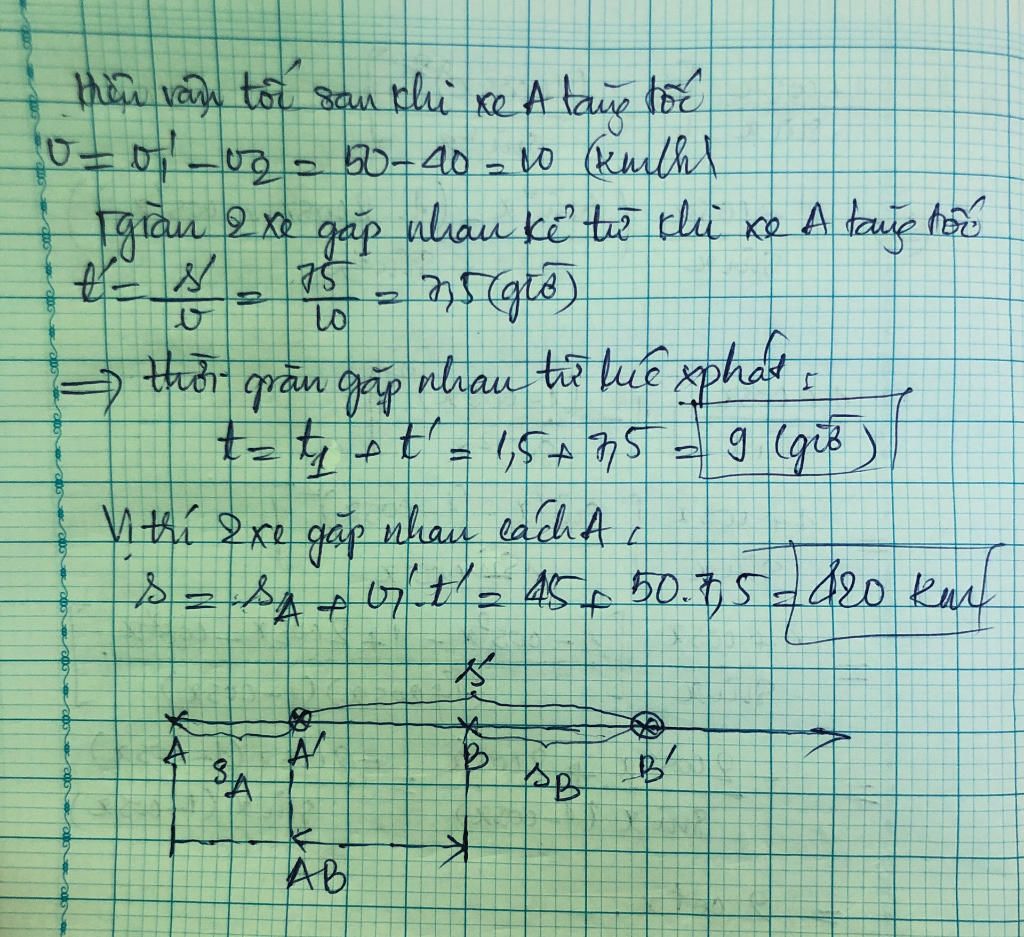 Hiệu vận tốc sau khi xe A tăng tốc
v = v₁' - v₂ = 50 - 40 = 10 (km/h)
Tgian 2 xe gặp nhau kể từ khi xe A tăng tốc
t' = s'/v = 75/10 = 7,5 (giờ)
=> thời gian gặp nhau từ lúc xphát:
t = t₁ + t' = 1,5 + 7,5 = 9 (giờ)
Vị trí 2 xe gặp nhau cách A:
s = s_A + v₁'.t' = 45 + 50.7,5 = 420 km
s'
A A' B B'
s_A s_B
AB